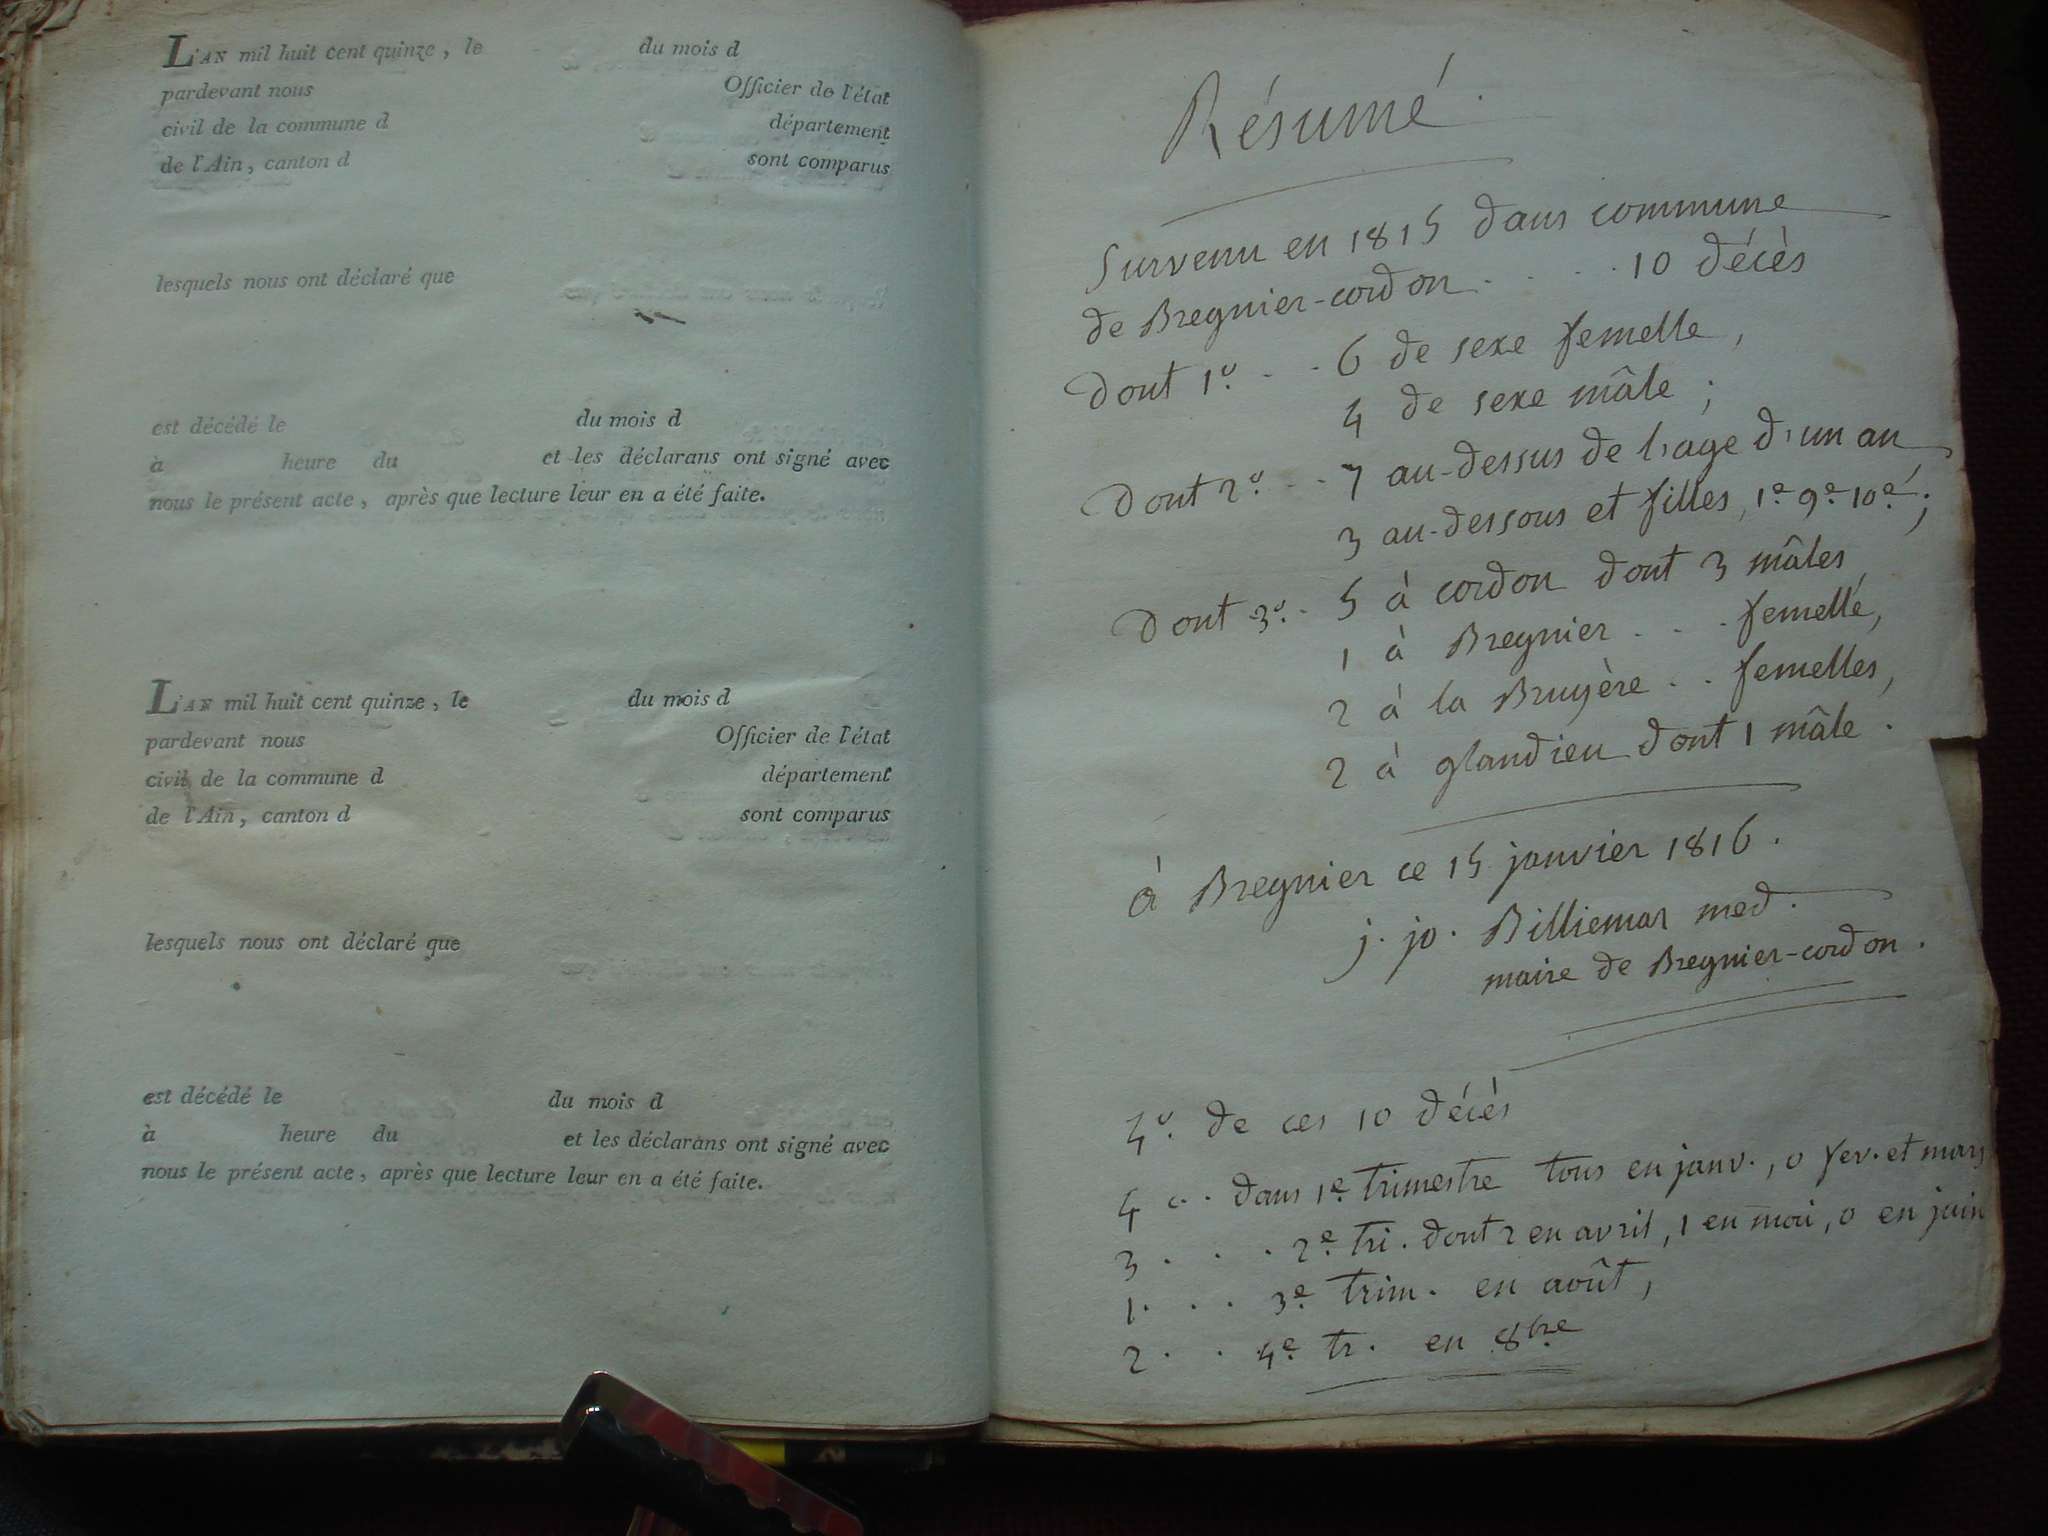 L'AN mil huit cent quinze, le du mois d
pardevant nous Officier de l'état
civil de la commune d département
de l'Ain, canton d sont comparus
lesquels nous ont déclaré que
est décédé le du mois d
à heure du et les déclarans ont signé avec
nous le présent acte, après que lecture leur en a été faite.
L'AN mil huit cent quinze, le du mois d
pardevant nous Officier de l'état
civil de la commune d département
de l'Ain, canton d sont comparus
lesquels nous ont déclaré que
est décédé le du mois d
à heure du et les déclarans ont signé avec
nous le présent acte, après que lecture leur en a été faite.
Résumé.
Survenu en 1815 dans commune
de Bregnier-cordon . . . . 10 décès
Dont 1º. . . 6 de sexe femelle,
4 de sexe mâle ;
Dont 2º. . . 7 au-dessus de l'age d'un an
3 au-dessous et filles, 1e. 9e. 10e. ;
Dont 3º. . 5 à cordon dont 3 mâles
1 à Bregnier . . . femelle,
2 à la Bruyère . . femelles,
2 à glandieu dont 1 mâle .
à Bregnier ce 15 janvier 1816 .
j. jo. Billiemar med.
maire de Bregnier-cordon .
4º. de ces 10 décès
4 . . . dans 1e. trimestre tous en janv., 0 fev. et mars
3 . . . . 2e. tri. dont 2 en avril, 1 en mai, 0 en juin
1 . . . . 3e. trim. en août,
2 . . . 4e. tr. en 8bre